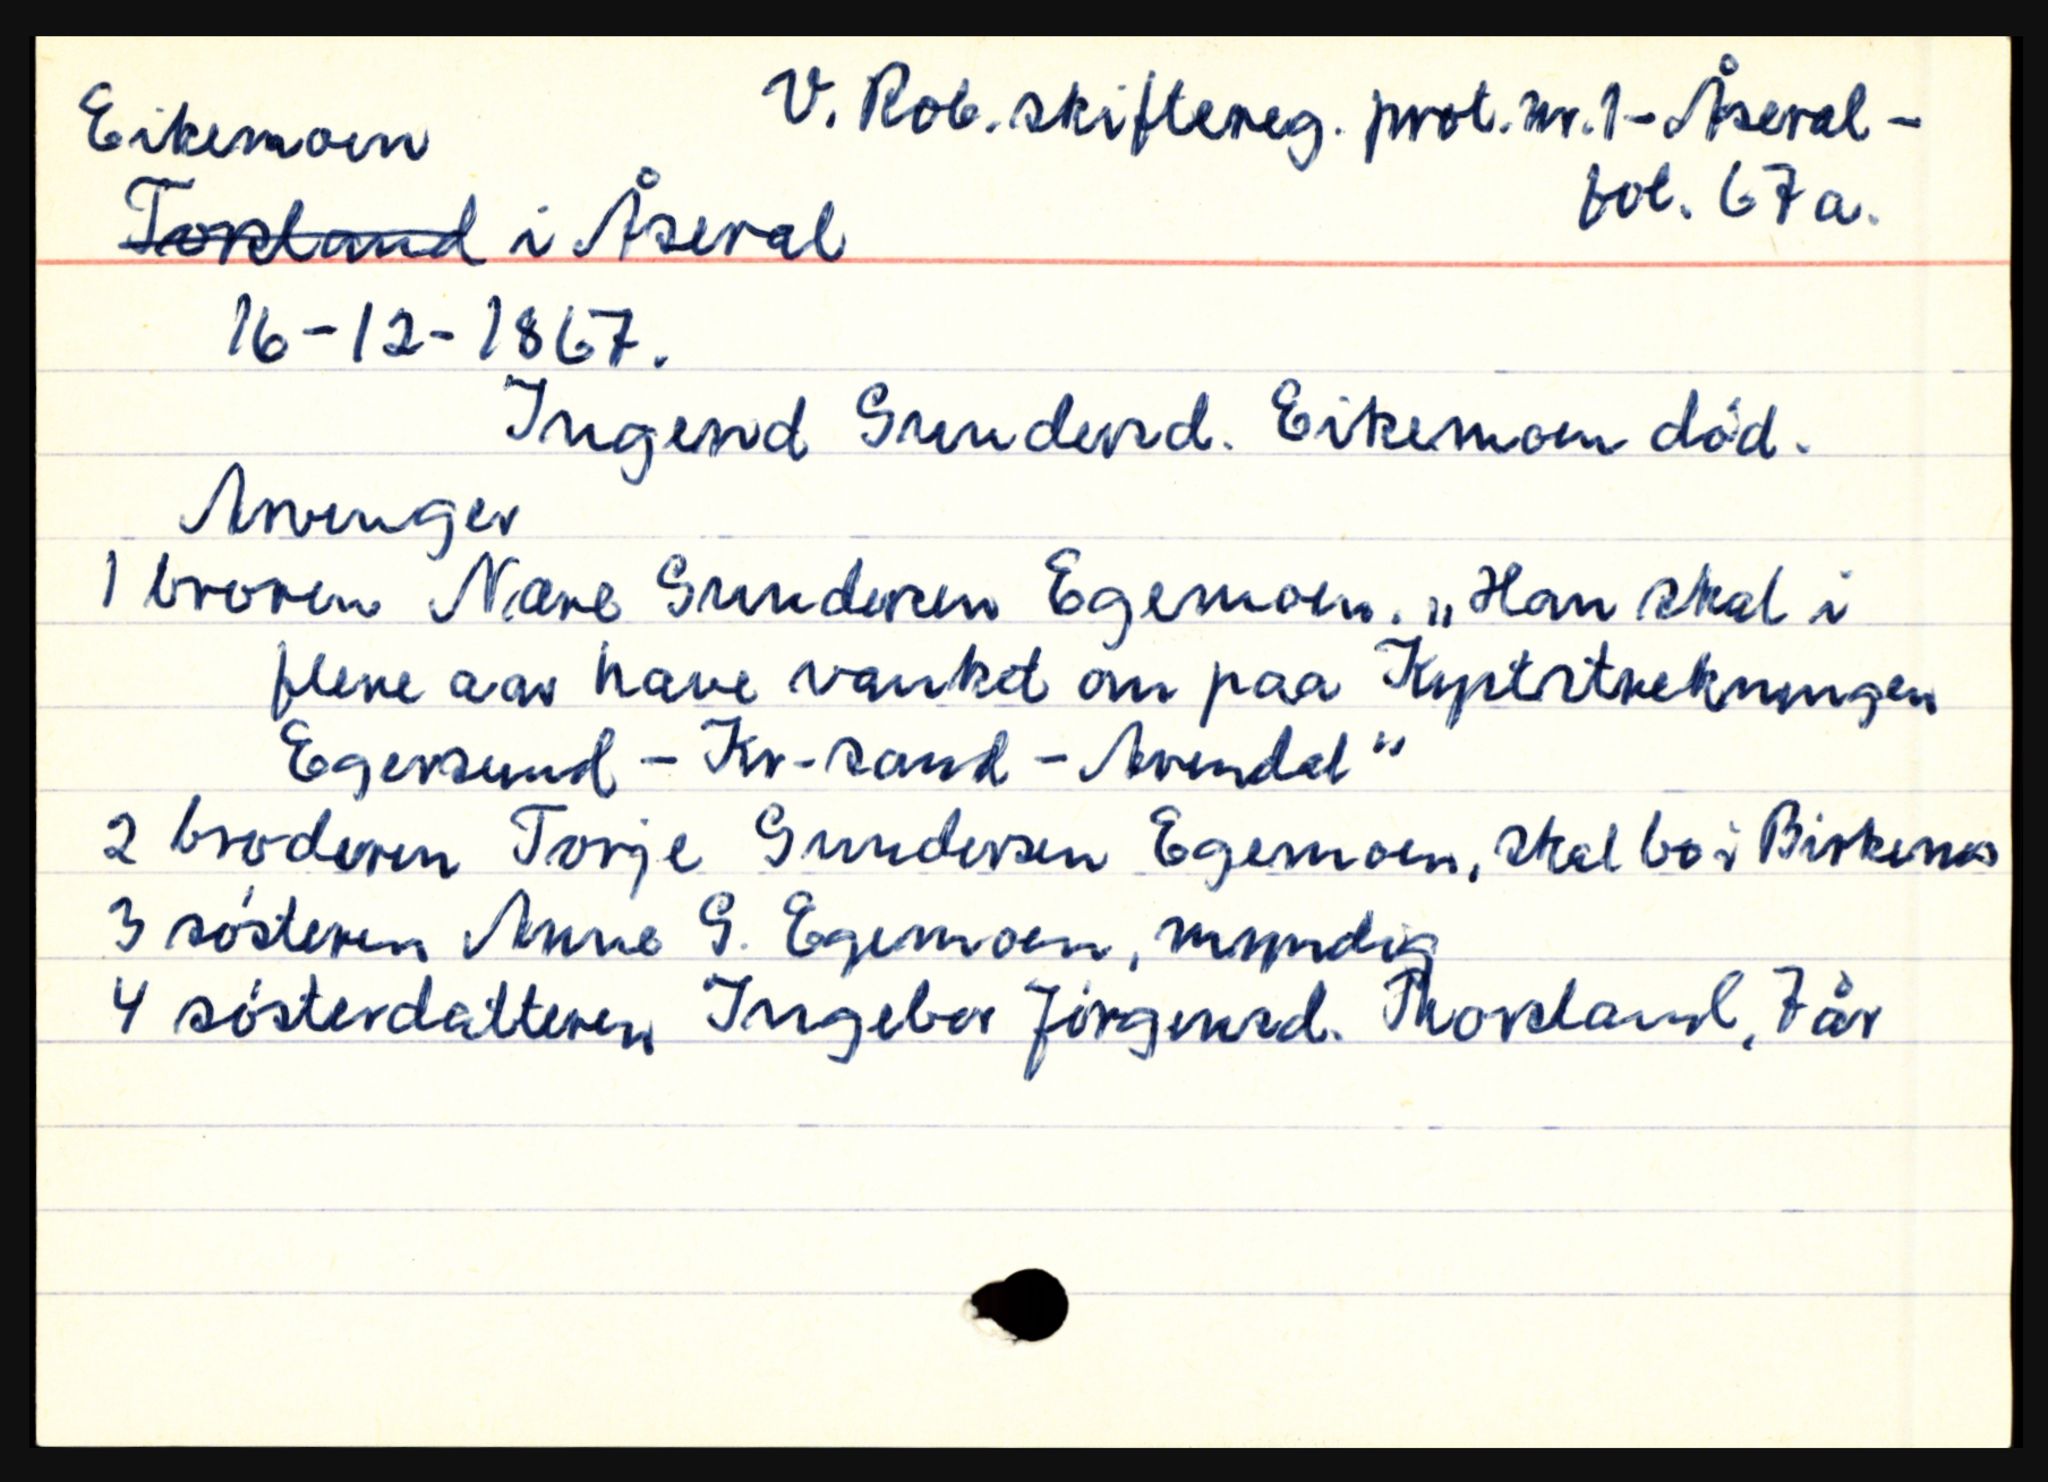 Eikemoen
V. Rob. skiftereg. prot. nr. 1 - Åseral -
fol. 67a.
Toreland i Åseral
16-12-1867.
Ingerid Gundersd. Eikemoen död.
Arvinger
1 broren Nære Gundersen Egemoen. „Han skal i
flere aar have vanket om paa Kyststrekningen
Egersund - Kr-sand - Arendal"
2 broderen Torje Gundersen Egemoen, skal bo i Birkenes
3 sösteren Anne G. Egemoen, myndig
4 sösterdatteren Ingebor Jörgensd. Thorsland, 7 år